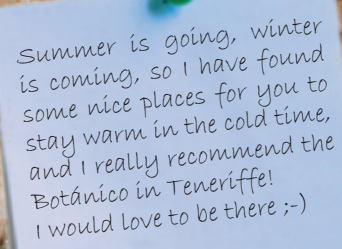 Summer is going, winter
is coming, so I have found
some nice places for you to
stay warm in the cold time,
and I really recommend the
Botánico in Teneriffe!
I would love to be there ;-)